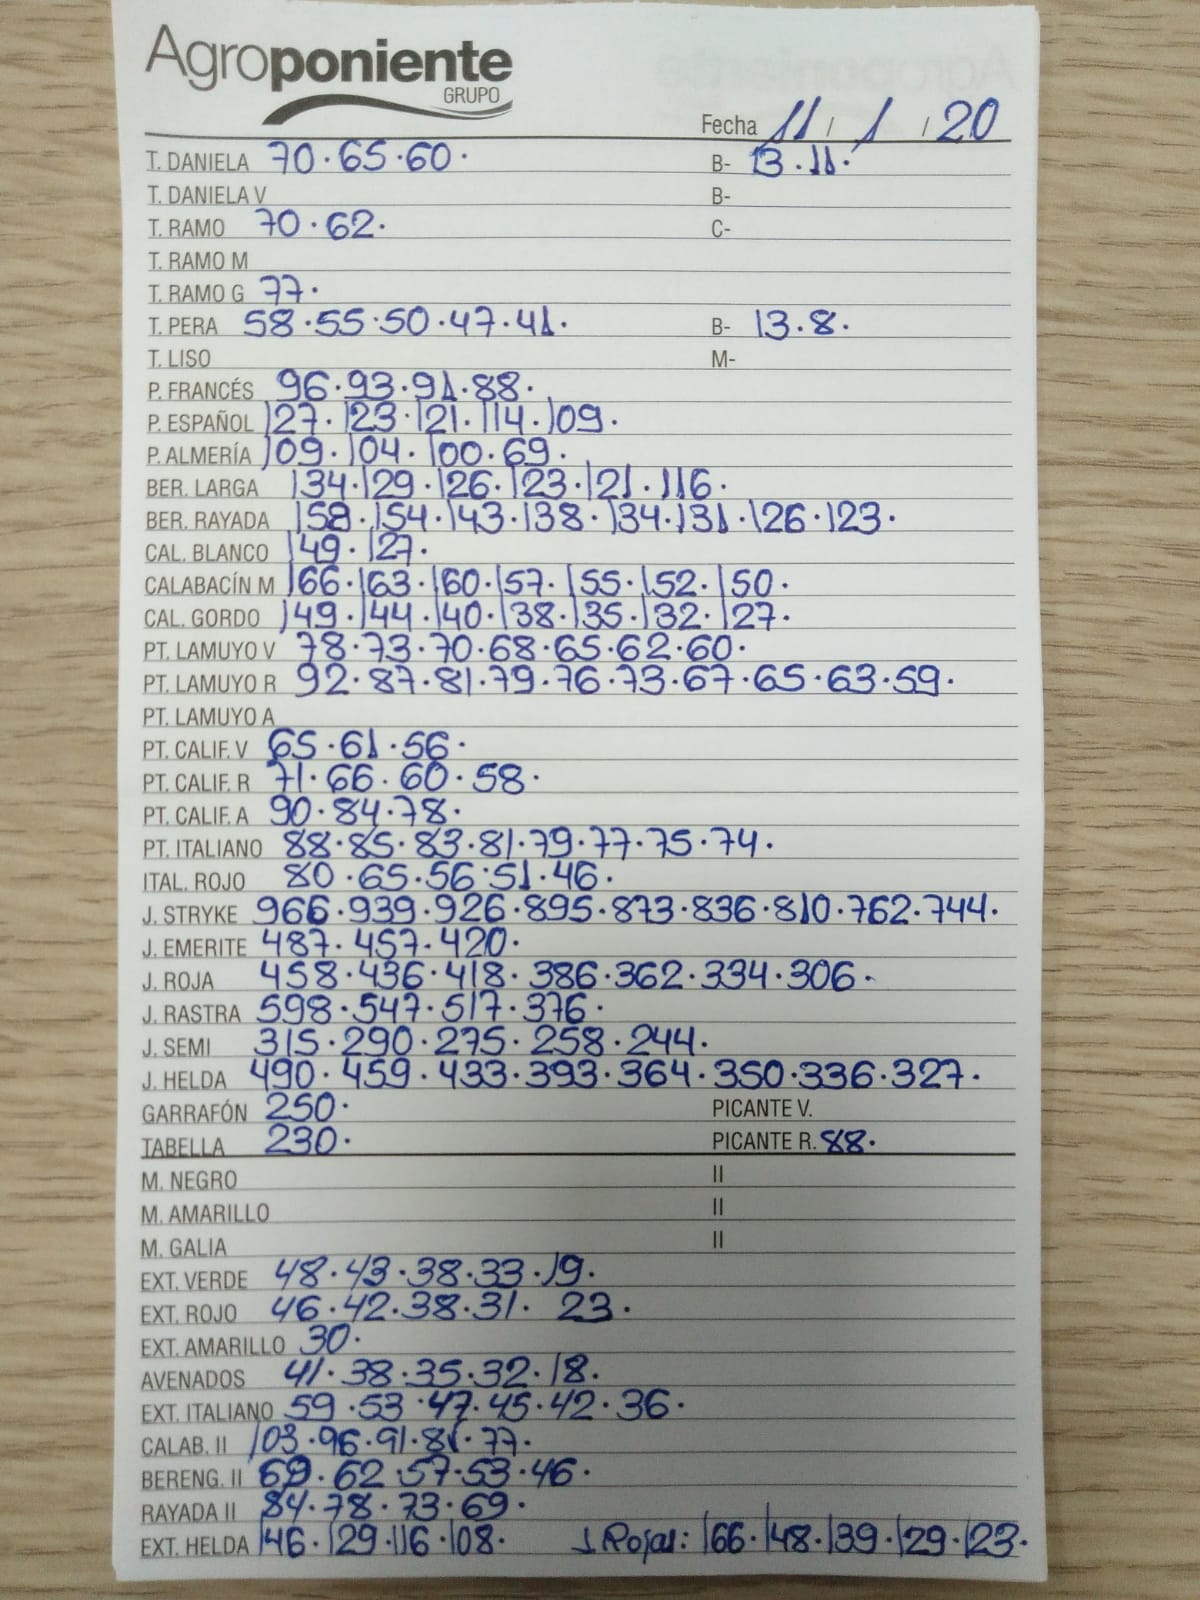 Agroponiente
GRUPO
Fecha 11 / 1 / 20
T. DANIELA 70·65·60· B- 13·11·
T. DANIELA V B-
T. RAMO 70·62· C-
T. RAMO M
T. RAMO G 77·
T. PERA 58·55·50·47·41· B- 13·8·
T. LISO M-
P. FRANCÉS 96·93·91·88·
P. ESPAÑOL 127·123·121·114·109·
P. ALMERÍA 109·104·100·69·
BER. LARGA 134·129·126·123·121·116·
BER. RAYADA 158·154·143·138·134·131·126·123·
CAL. BLANCO 149·127·
CALABACÍN M 166·163·160·157·155·152·150·
CAL. GORDO 149·144·140·138·135·132·127·
PT. LAMUYO V 78·73·70·68·65·62·60·
PT. LAMUYO R 92·87·81·79·76·73·67·65·63·59·
PT. LAMUYO A
PT. CALIF. V 65·61·56·
PT. CALIF. R 71·66·60·58·
PT. CALIF. A 90·84·78·
PT. ITALIANO 88·85·83·81·79·77·75·74·
ITAL. ROJO 80·65·56·51·46·
J. STRYKE 966·939·926·895·873·836·810·762·744·
J. EMERITE 487·457·420·
J. ROJA 458·436·418·386·362·334·306·
J. RASTRA 598·547·517·376·
J. SEMI 315·290·275·258·244·
J. HELDA 490·459·433·393·364·350·336·327·
GARRAFÓN 250· PICANTE V.
TABELLA 230· PICANTE R. 88·
M. NEGRO II
M. AMARILLO II
M. GALIA II
EXT. VERDE 48·43·38·33·19·
EXT. ROJO 46·42·38·31· 23·
EXT. AMARILLO 30·
AVENADOS 41·38·35·32·18·
EXT. ITALIANO 59·53·47·45·42·36·
CALAB. II 103·96·91·81·77·
BERENG. II 69·62·57·53·46·
RAYADA II 84·78·73·69·
EXT. HELDA 146·129·116·108· J. Rojas: 166·148·139·129·123·